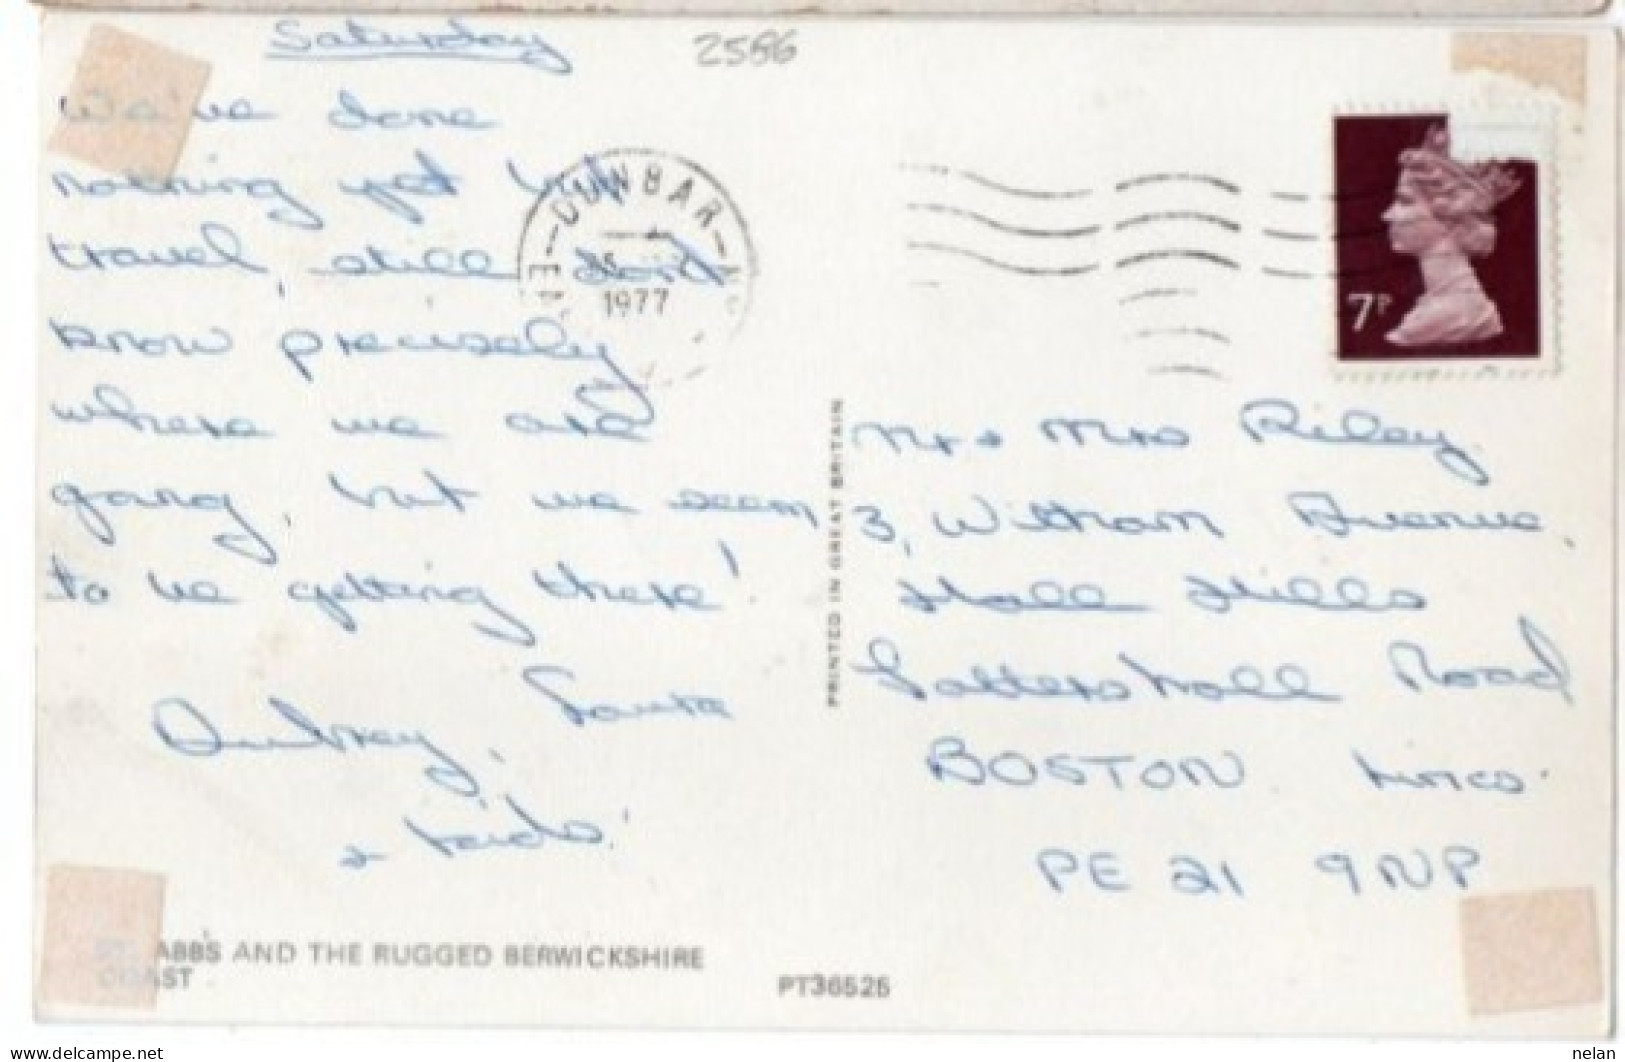 Saturday
2586
We've done
nothing yet but
travel, still dont
know precisely
where we are
going, but we seem
to be getting there!
Aubrey,
+ kids!
DUNBAR
1977
7P
PRINTED IN GREAT BRITAIN
Mr + Mrs Riley
3, Witham Avenue,
Hall Hills
Tattershall Road
BOSTON Lincs.
PE 21 9NP
ST. ABBS AND THE RUGGED BERWICKSHIRE
COAST
PT36525
nelan